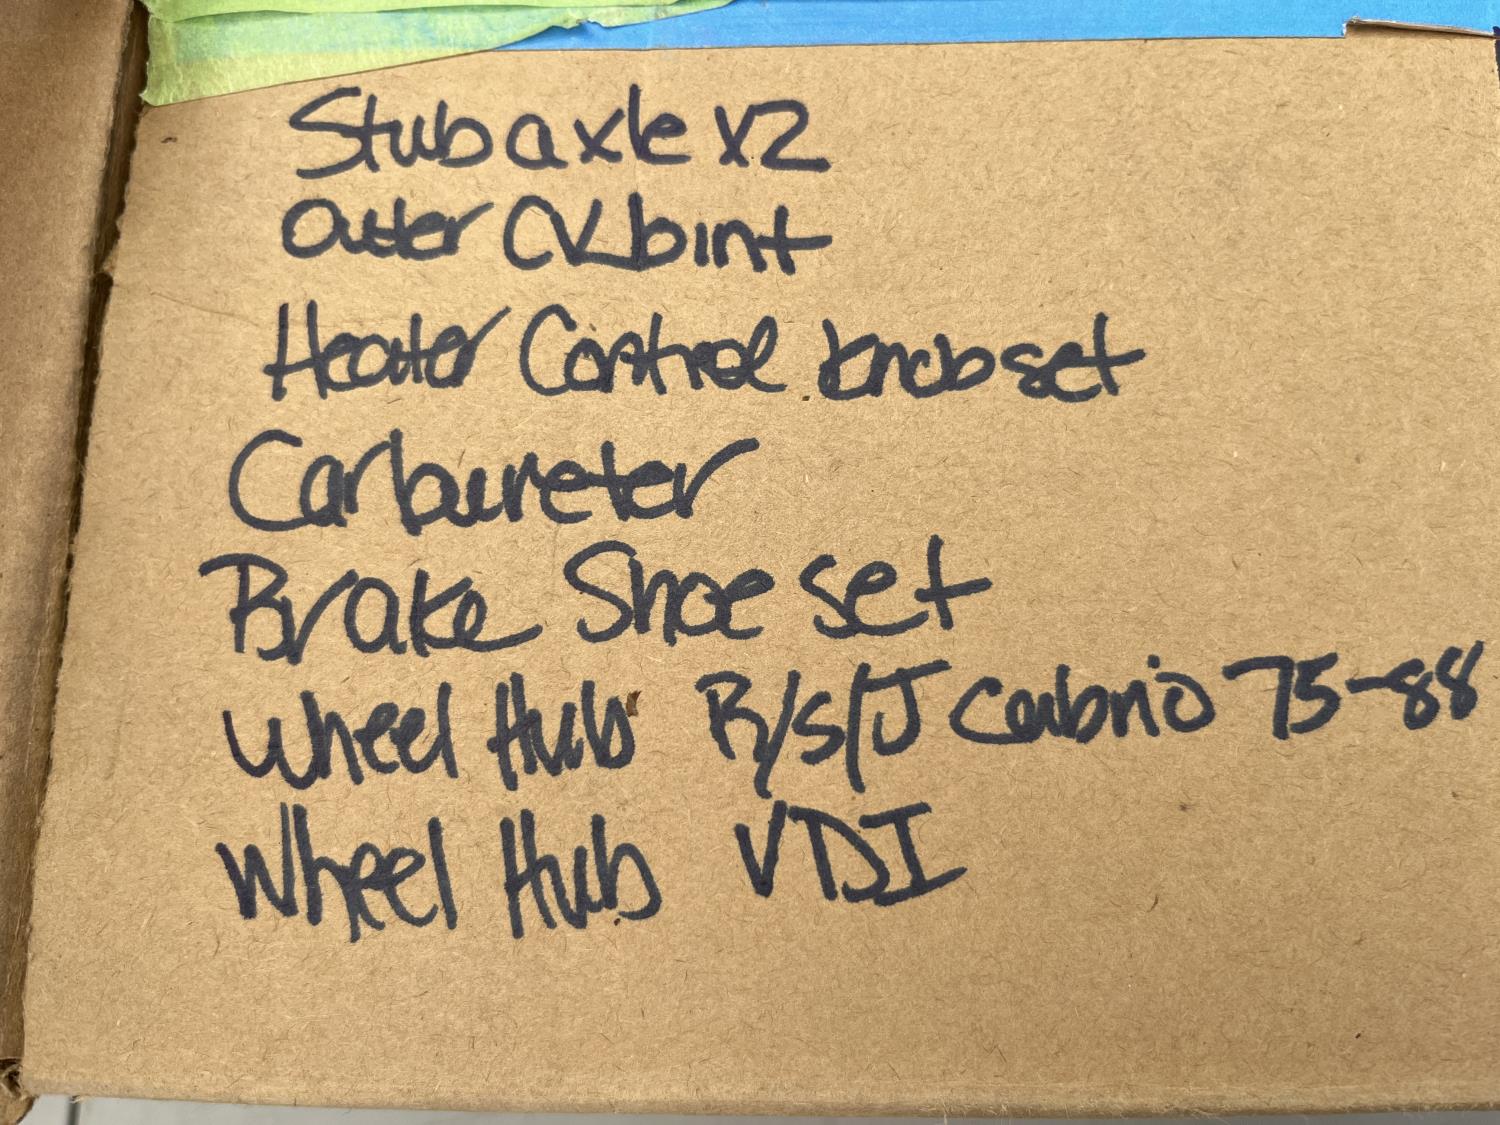 Stub axle x2
Outer CV Joint
Heater Control knob set
Carbureter
Brake Shoe set
Wheel Hub R/S/J Cabrio 75-88
Wheel Hub VDI